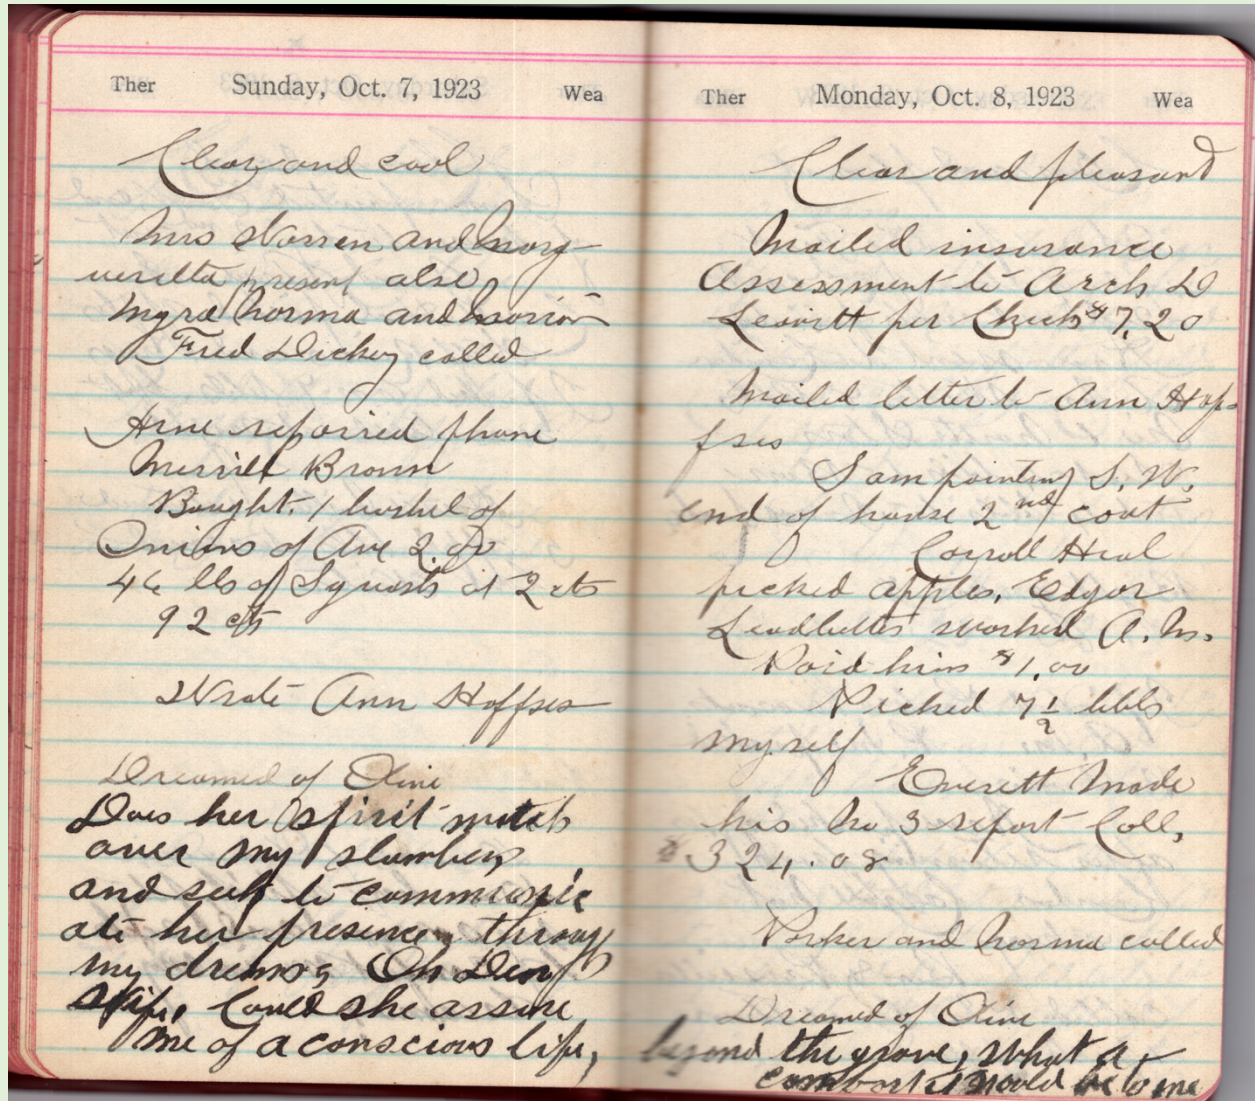 Ther Sunday, Oct. 7, 1923 Wea
Clear and cool
Mrs Warren and Marg-
ueritta present also
Myra Norma and Marion
Fred Dickey called
Arne repaired phone
Merrill Brown
Bought. 1 bushel of
Onions of Ave 2.00
46 lbs of Squash at 2 cts
92 cts
Wrote Ann Hoffses
Dreamed of Oline
Does her spirit watch
over my slumbers
and seek to communic
ate her presence, through
my dreams, Oh Dear
Wife, Could she assure
me of a conscious life,
Ther Monday, Oct. 8, 1923 Wea
Clear and pleasant
Mailed insurance
Assessment to Arch D
Leavitt per Check $7.20
Mailed letter to Ann Hof-
fses
Sam painting S. W.
end of house 2nd coat
Carroll Heal
picked apples, Edgar
Leadbetter worked A. M.
Paid him $1.00
Picked 7 1/2 bbls
myself
Everett Made
his No 3 report Coll,
$324.08
Parker and Norma called
Dreamed of Oline
beyond the grave, What a
comfort it would be to me